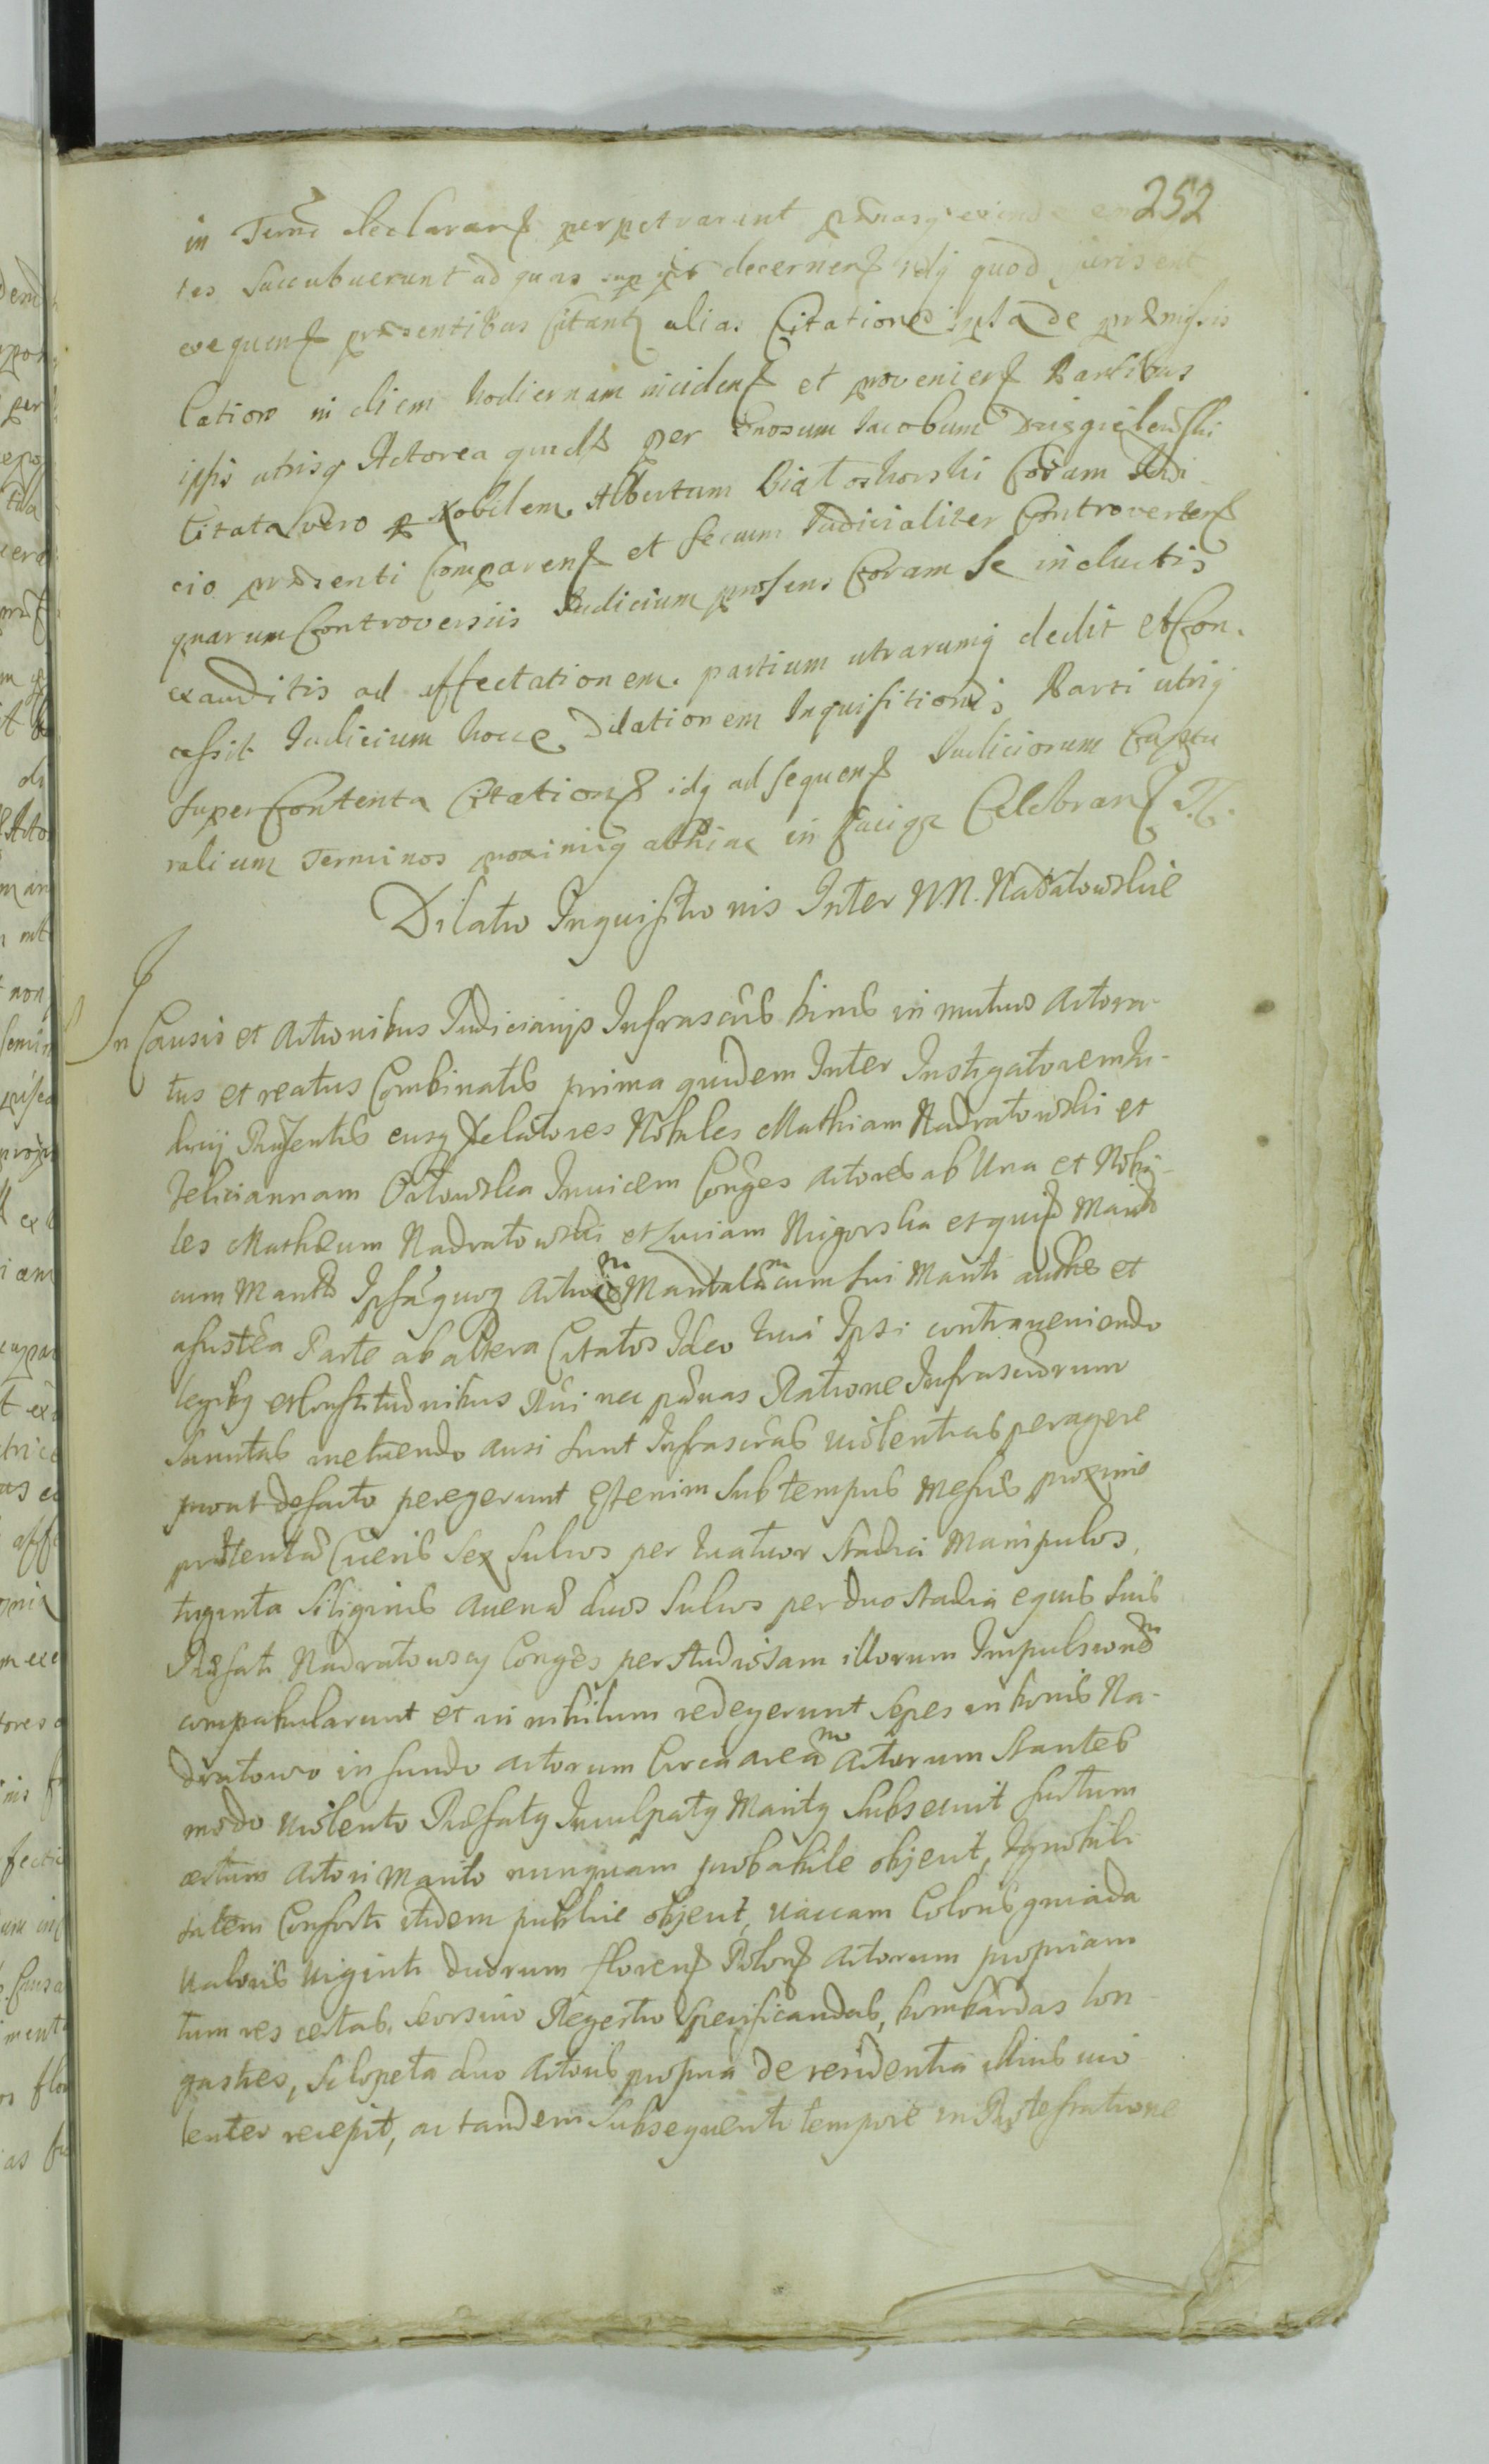 252
in Termo declararens perpetrarunt pænasq exinde
tes succubuerunt ad quas decernens idq quod juris ent
exequens præsentibus Citant alias Citatione ipsa de præmissis
latiore in diem hodiernam incidens et proveniens Partibus
ipsis utrisq Actorea quidem per Gnosum Jacobum
Citata vero p Nobilem Albertum Białoskorski Coram Judi
cio præsenti Comparens et secum Judicialiter Controvertens
quarum Controversiis Judicium præsens Coram se inductis
exauditis ad affectationem partium utrarumq dedit et Con
cessit Judicium hocce Dilationem Inquisitionis Parti utriq
super Contenta Citationis idq ad sequens Judiciorum Castu
ralium Terminos proximiq abhinc in Celebrans
Dilatio Inquisitionis Inter N.N. Nadratowskie
In Causis et Actionibus Judiciarijs Infrascris binis in mutuos Actora-
tus et reatus Combinatis prima quidem Inter Instigatorem Ju-
dicij Præsentis eiusq Delatores Nobiles Mathiam Nadratowski et
Feliciannam Orłowska Invicem Conges Actores ab Una et Nobi-
les Mathæum Nadratowski et Luciam Nigorska et quid Marito
cum Marito Ipsāquoq Mantalēm cum sui Mariti authē et
assistēa Parte ab altera Citatos Ideo Ipsi contraveniendo
legibq et Constitutionibus Rni nec pænas Ratione Infrascriorum
sancitas metuendo ausi sunt Infrascrās violentias peragere
prout de facto peregerunt Etenim sub tempus Messis proxime
præteritæ Ciceris Sex sulcos per quatuor Stadia Manipulos
triginta Siliginis avenæ duos Sulcos per duo Stadia equis suis
Præfati Nadratowscy Conges per studiosam illorum Impulsionem
compabularunt et in nihilum redegerunt Sepes in bonis Na-
dratowo in fundo actorum Circa aream Actorum Stantes
modo violento Præfatq Inculpatq Maritq Subsecuit furtum
Actori Marito nunquam probabile objecit, Ignobili
tatem Consorti itidem publice objecit, vaccam Coloris gniada
valoris viginti duorum florens Polons Actorum propriam
tum res certas seorsivo Regestro Specificandas, bombardas lon-
gas tres, Sclopeta duo Actoris propria de residentia illius vio
lenter recepit, ac tandem Subsequenti tempore in Protestatione